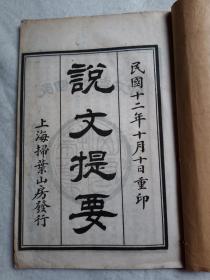 民國十二年十月十日重印
說文提要
上海掃葉山房發行